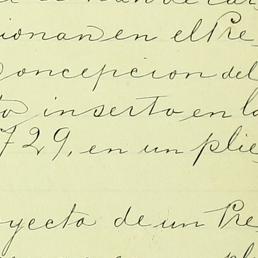 cionan en el Pre
Concepcion del
to inserto en la
729, en un plie
oyecto de un Pre